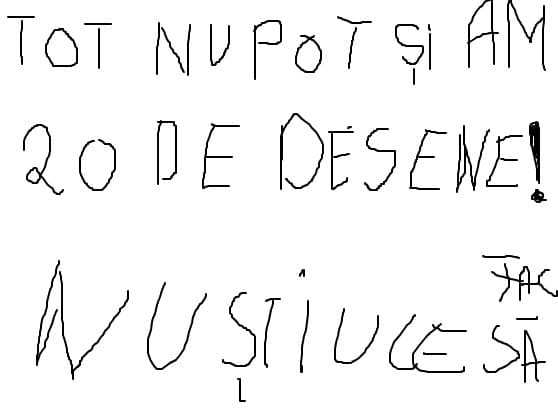 TOT NU POT ȘI AM
20 DE DESENE!
NU ȘTIU CE SĂ FAC